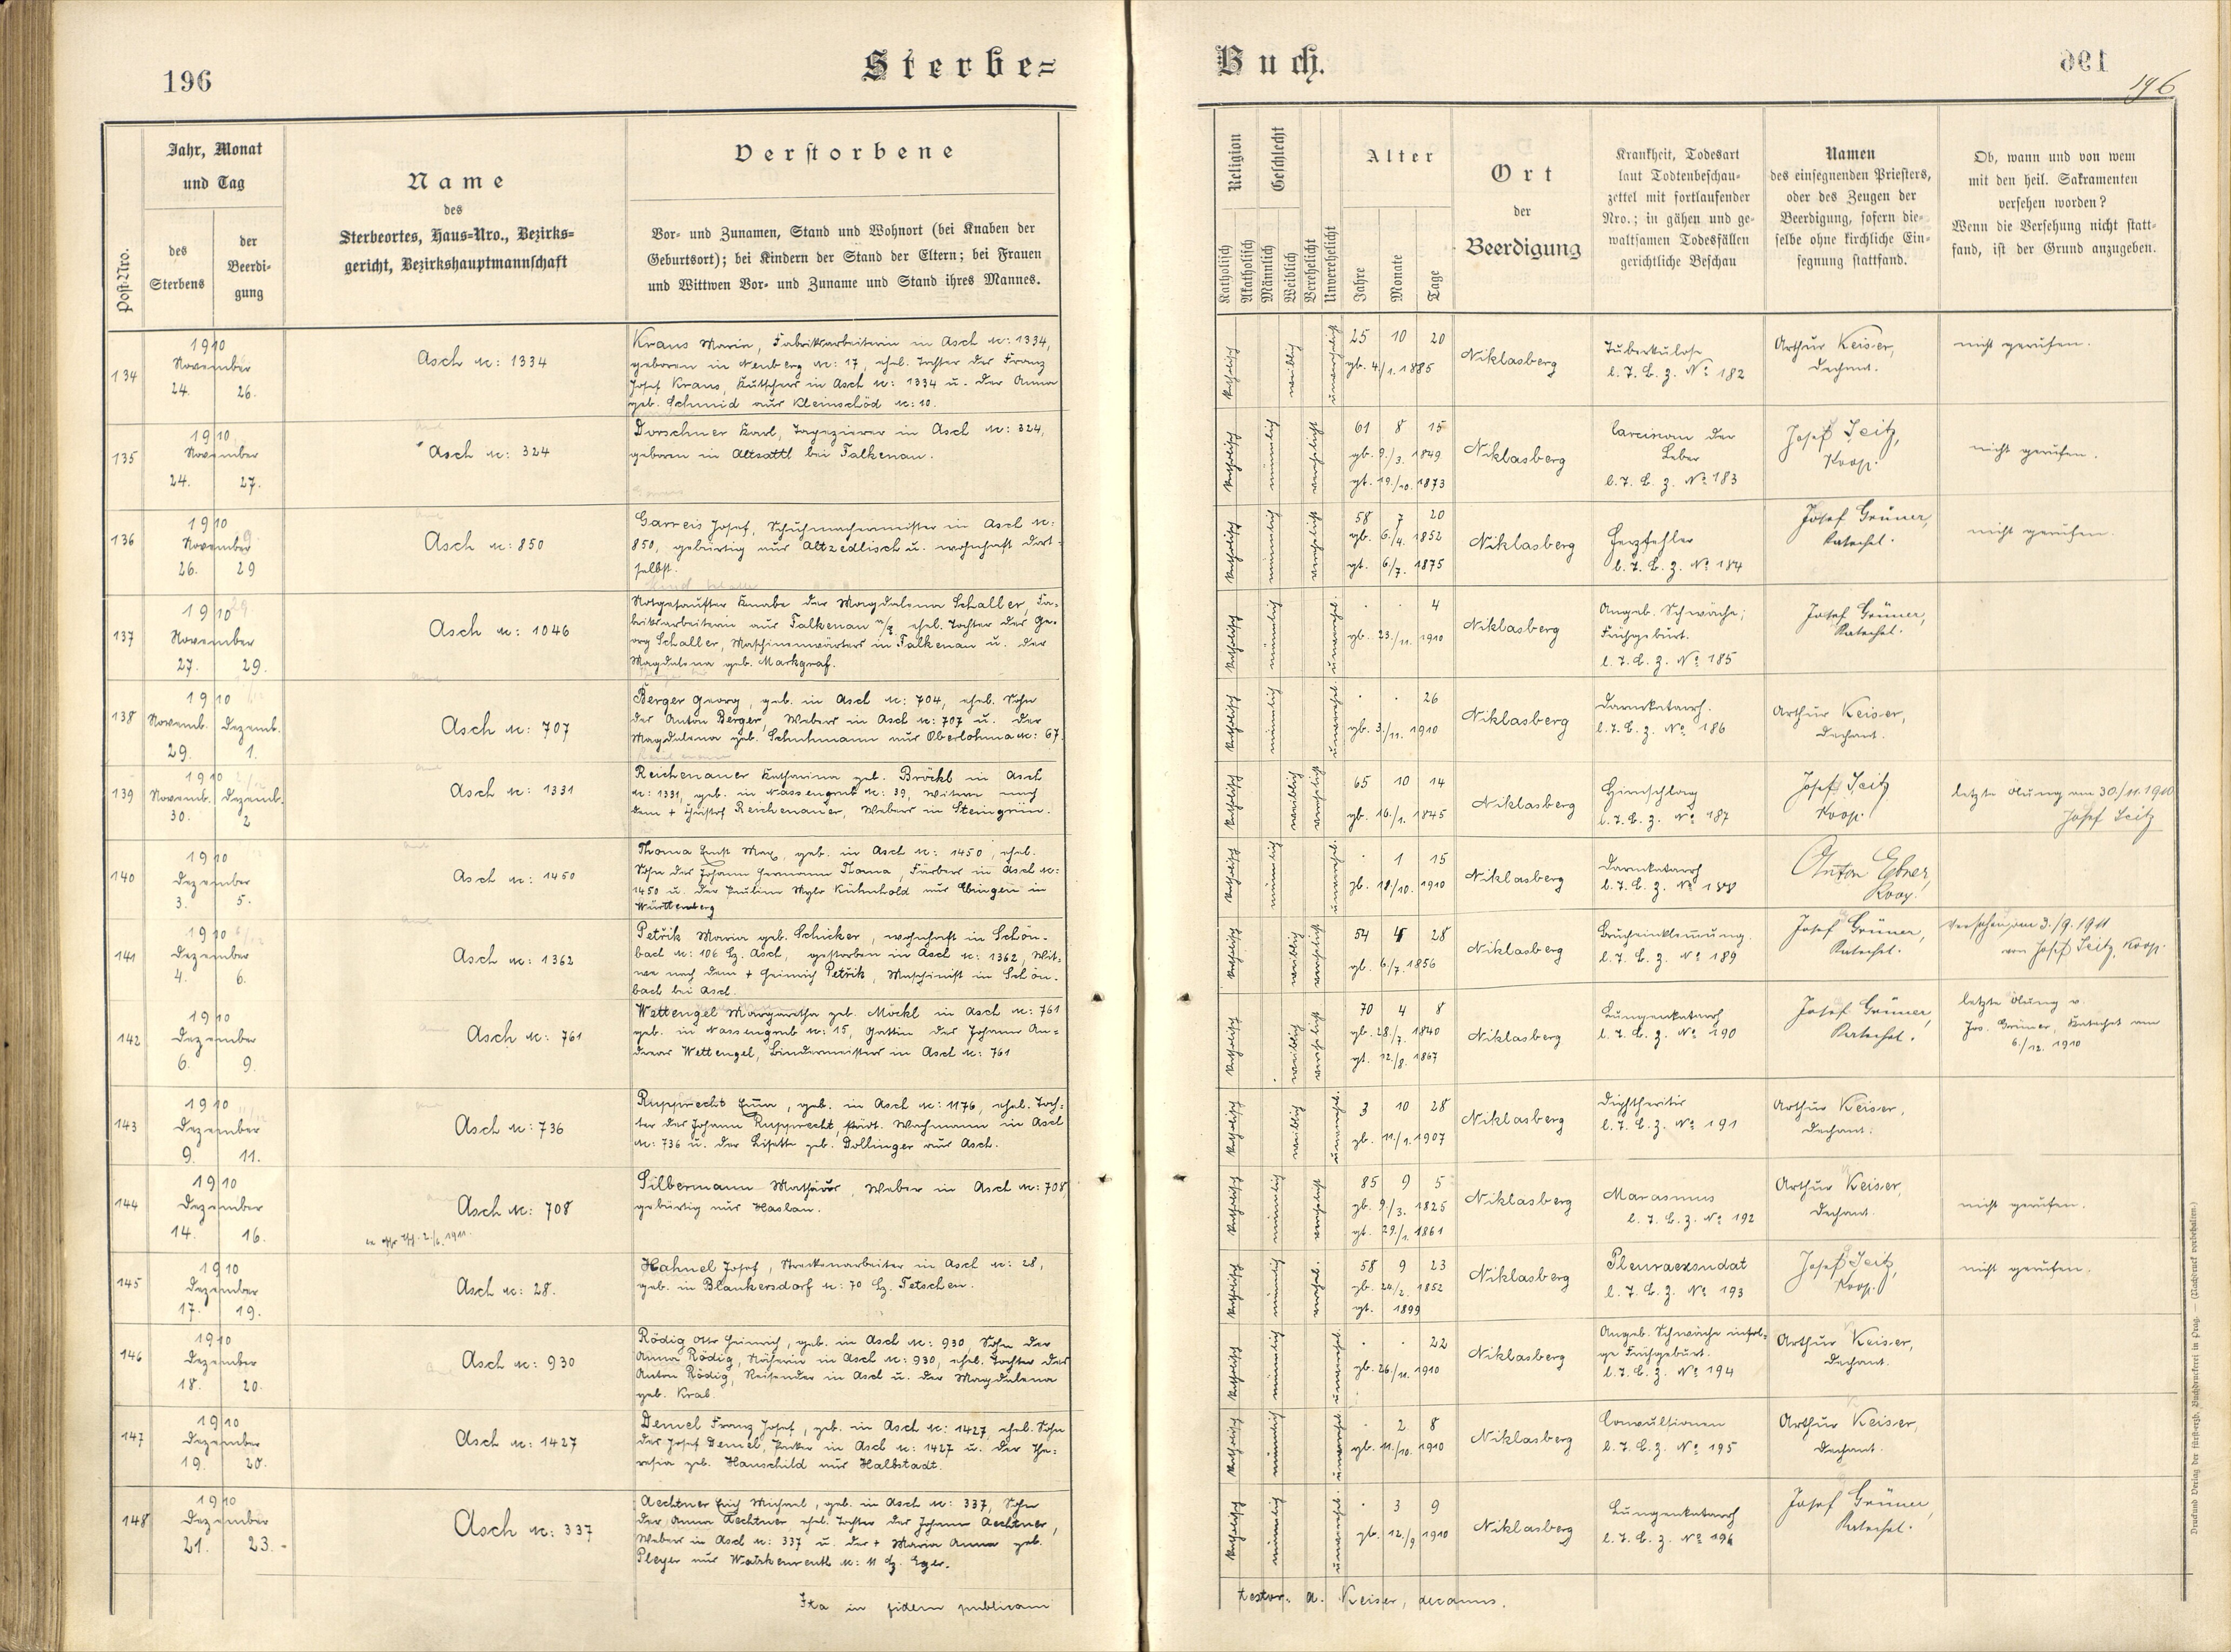 196
Sterbe=
Post-Nro.
Jahr, Monat
und Tag
des
Sterbens
der
Beerdi-
gung
Name
des
Sterbeortes, Haus-Nro., Bezirks-
gericht, Bezirkshauptmannschaft
Verstorbene
Vor- und Zunamen, Stand und Wohnort (bei Knaben der
Geburtsort); bei Kindern der Stand der Eltern; bei Frauen
und Wittwen Vor- und Zuname und Stand ihres Mannes.
134
1910
November
24. 26.
Asch N: 1334
Kraus Maria, Fabriksarbeiterin in Asch N: 1334,
geboren in Neuberg N: 17, ehel. Tochter des Franz
Josef Kraus, Kutschers in Asch N: 1334 u. der Anna
geb. Schmid aus Kleinschöd N: 10.
135
1910
November
24. 27.
Asch N: 324
Dorschner Karl, Tapezierer in Asch N: 324,
geboren in Altsattl bei Falkenau.
136
1910
November
26. 29
Asch N: 850
Garreis Josef, Schuhmachermeister in Asch N:
850, gebürtig aus Altzedlisch u. wohnhaft dort-
selbst.
137
1910
November
27. 29.
Asch N: 1046
Notgetaufter Knabe der Magdalena Schaller, Fa-
briksarbeiterin aus Falkenau a/E ehel. Tochter des Ge-
org Schaller, Maschinenwärters in Falkenau u. der
Magdalena geb. Markgraf.
138
1910
Novemb. Dezemb.
29. 1.
Asch N: 707
Berger Georg, geb. in Asch N: 704, ehel. Sohn
des Anton Berger, Webers in Asch N: 707 u. der
Magdalena geb. Schuhmann aus Oberlohma N: 67.
139
1910
Novemb. Dezemb.
30. 2
Asch N: 1331
Reichenauer Katharina geb. Bröckl in Asch
N: 1331, geb. in Nassengrub N: 39, Witwe nach
dem + Christof Reichenauer, Webers in Steingrün.
140
1910
Dezember
3. 5.
Asch N: 1450
Thoma Ernst Max, geb. in Asch N: 1450, ehel.
Sohn des Johann Hermann Thoma, Färbers in Asch N:
1450 u. der Paulina Kühnhold aus Ebingen in
Württemberg
141
1910
Dezember
4. 6.
Asch N: 1362
Petřik Maria geb. Schicker, wohnhaft in Schön-
bach N: 106 Bz. Asch, gestorben in Asch N: 1362, Wit-
we nach dem + Heinrich Petřik, Maschinist in Schön-
bach bei Asch.
142
1910
Dezember
6. 9.
Asch N: 761
Wettengel Margaretha geb. Möckl in Asch N: 761
geb. in Nassengrub N: 15, Gattin des Johann An-
dreas Wettengel, Bindermeisters in Asch N: 761
143
1910
Dezember
9. 11.
Asch N: 736
Rupprecht Emma, geb. in Asch N: 1176, ehel. Toch-
ter des Johann Rupprecht, städt. Wachmann in Asch
N: 736 u. der Lisette geb. Dollinger aus Asch.
144
1910
Dezember
14. 16.
Asch N: 708
Silbermann Mathäus, Weber in Asch N: 708
gebürtig aus Haslau.
145
1910
Dezember
17. 19.
Asch N: 28.
Hahnel Josef, Streckenarbeiter in Asch N: 28,
geb. in Blankersdorf N: 70 Bz. Tetschen.
146
1910
Dezember
18. 20.
Asch N: 930
Rödig Otto Heinrich, geb. in Asch N: 930, Sohn der
Anna Rödig, Näherin in Asch N: 930, ehel. Tochter des
Anton Rödig, Reisender in Asch u. der Magdalena
geb. Krab.
147
1910
Dezember
19. 20.
Asch N: 1427
Demel Franz Josef, geb. in Asch N: 1427, ehel. Sohn
des Josef Demel, in Asch N: 1427 u. der The-
resia geb. Hanschild aus Halbstadt.
148
1910
Dezember
21. 23.-
Asch N: 337
Aechtner Erich Michael, geb. in Asch N: 337, Sohn
der Anna Aechtner ehel. Tochter des Johann Aechtner,
Webers in Asch N: 337 u. der + Maria Anna geb.
Pleyer aus N: 11 Bz. Eger.
Ita in fidem publicam
Buch.
196
Religion
Katholisch
Akatholisch
Geschlecht
Männlich
Weiblich
Verehelicht
Unverehelicht
Alter
Jahre
Monate
Tage
Ort
der
Beerdigung
Krankheit, Todesart
laut Todtenbeschau-
zettel mit fortlaufender
Nro.; in gähen und ge-
waltsamen Todesfällen
gerichtliche Beschau
Namen
des einsegnenden Priesters,
oder des Zeugen der
Beerdigung, sofern die-
selbe ohne kirchliche Ein-
segnung stattfand.
Ob, wann und von wem
mit den heil. Sakramenten
versehen worden?
Wenn die Versehung nicht statt-
fand, ist der Grund anzugeben.
katholisch weiblich unverehelicht
25 10 20
gb. 4/1. 1885
Niklasberg
Tuberkulose
l. T. B. z. No 182
Arthur Keiser,
Dechant.
nicht gerufen.
katholisch männlich verehelicht
61 8 15
gb. 9./3. 1849
gt. 19./10. 1873
Niklasberg
Carcinom der
Leber
l. T. B. z. No 183
Josef Seitz,
Koop.
nicht gerufen.
katholisch männlich verehelicht
58 7 20
gb. 6./4. 1852
gt. 6/7. 1875
Niklasberg
Herzfehler
l. T. B. z. No 184
Josef Grüner,
Katechet.
nicht gerufen.
katholisch männlich unverehel.
. . 4
gb. 23./11. 1910
Niklasberg
Angeb. Schwäche;
Frühgeburt.
l. T. B. z. No 185
Josef Grüner,
Katechet.
katholisch männlich unverehel.
. . 26
gb. 3./11. 1910
Niklasberg
Darmkatarrh.
l. T. B. z. No 186
Arthur Keiser,
Dechant.
katholisch weiblich verehelicht
65 10 14
gb. 16./1. 1845
Niklasberg
Hirnschlag
l. T. B. z. No 187
Josef Seitz
Koop.
letzte Ölung am 30./11. 1910
Josef Seitz
katholisch männlich unverehel.
. 1 15
gb. 18/10. 1910
Niklasberg
Darmkatarrh
l. T. B. z. No 188
Anton Ebner,
Koop.
katholisch weiblich verehelicht
54 4 28
gb. 6/7. 1856
Niklasberg
Brucheinklemmung.
l. T. B. z. No 189
Josef Grüner,
Katechet.
Versehen am 3./9. 1911
von Josef Seitz, Koop.
katholisch weiblich verehelicht
70 4 8
gb. 28./7. 1840
gt. 12./8. 1867
Niklasberg
Lungenkatarrh
l. T. B. z. No 190
Josef Grüner,
Katechet.
letzte Ölung v.
Jos. Grüner, Katechet am
6./12. 1910
katholisch weiblich unverehel.
3 10 28
gb. 11./1. 1907
Niklasberg
Diphtheritis
l. T. B. z. No 191
Arthur Keiser,
Dechant.
katholisch männlich verehelicht
85 9 5
gb. 9./3. 1825
gt. 29./1. 1861
Niklasberg
Marasmus
l. T. B. z. No 192
Arthur Keiser,
Dechant.
nicht gerufen.
katholisch männlich verehel.
58 9 23
gb. 24/2. 1852
gt. 1899
Niklasberg
Pleuraexsudat
l. T. B. z. No 193
Josef Seitz,
Koop.
nicht gerufen.
katholisch männlich unverehel.
. . 22
gb. 26/11. 1910
Niklasberg
Angeb. Schwäche infol-
ge Frühgeburt.
l. T. B. z. No 194
Arthur Keiser,
Dechant.
katholisch männlich unverehel.
. 2 8
gb. 11./10. 1910
Niklasberg
Convulsionen
l. T. B. z. No 195
Arthur Keiser,
Dechant.
katholisch männlich unverehel.
. 3 9
gb. 12./9 1910
Niklasberg
Lungenkatarrh
l. T. B. z. No 196
Josef Grüner,
Katechet.
testor. A. Keiser, decanus.
Druck und Verlag der fürsterzb. Buchdruckerei in Prag. — (Nachdruck vorbehalten.)